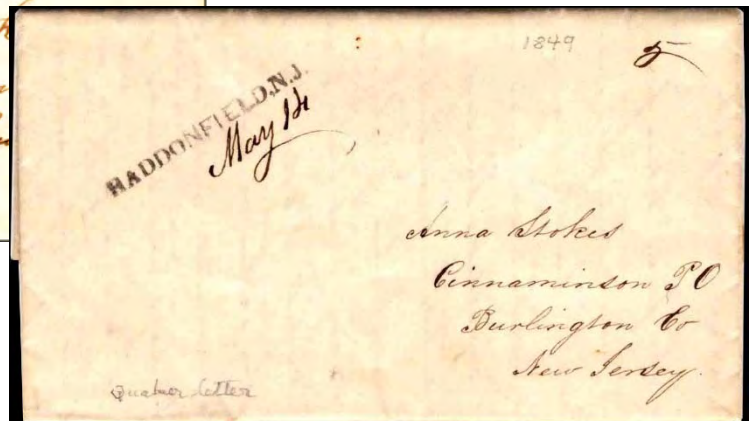 1849
5
HADDONFIELD, N.J.
May 14
Anna Stokes
Cinnaminson P O
Burlington Co
New Jersey.
Quaker letter